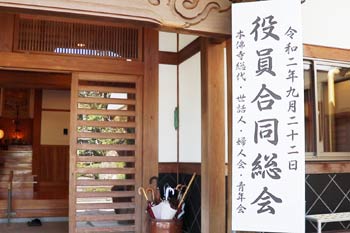 令和二年九月二十二日
役員合同総会
本佛寺総代・世話人・婦人会・青年会